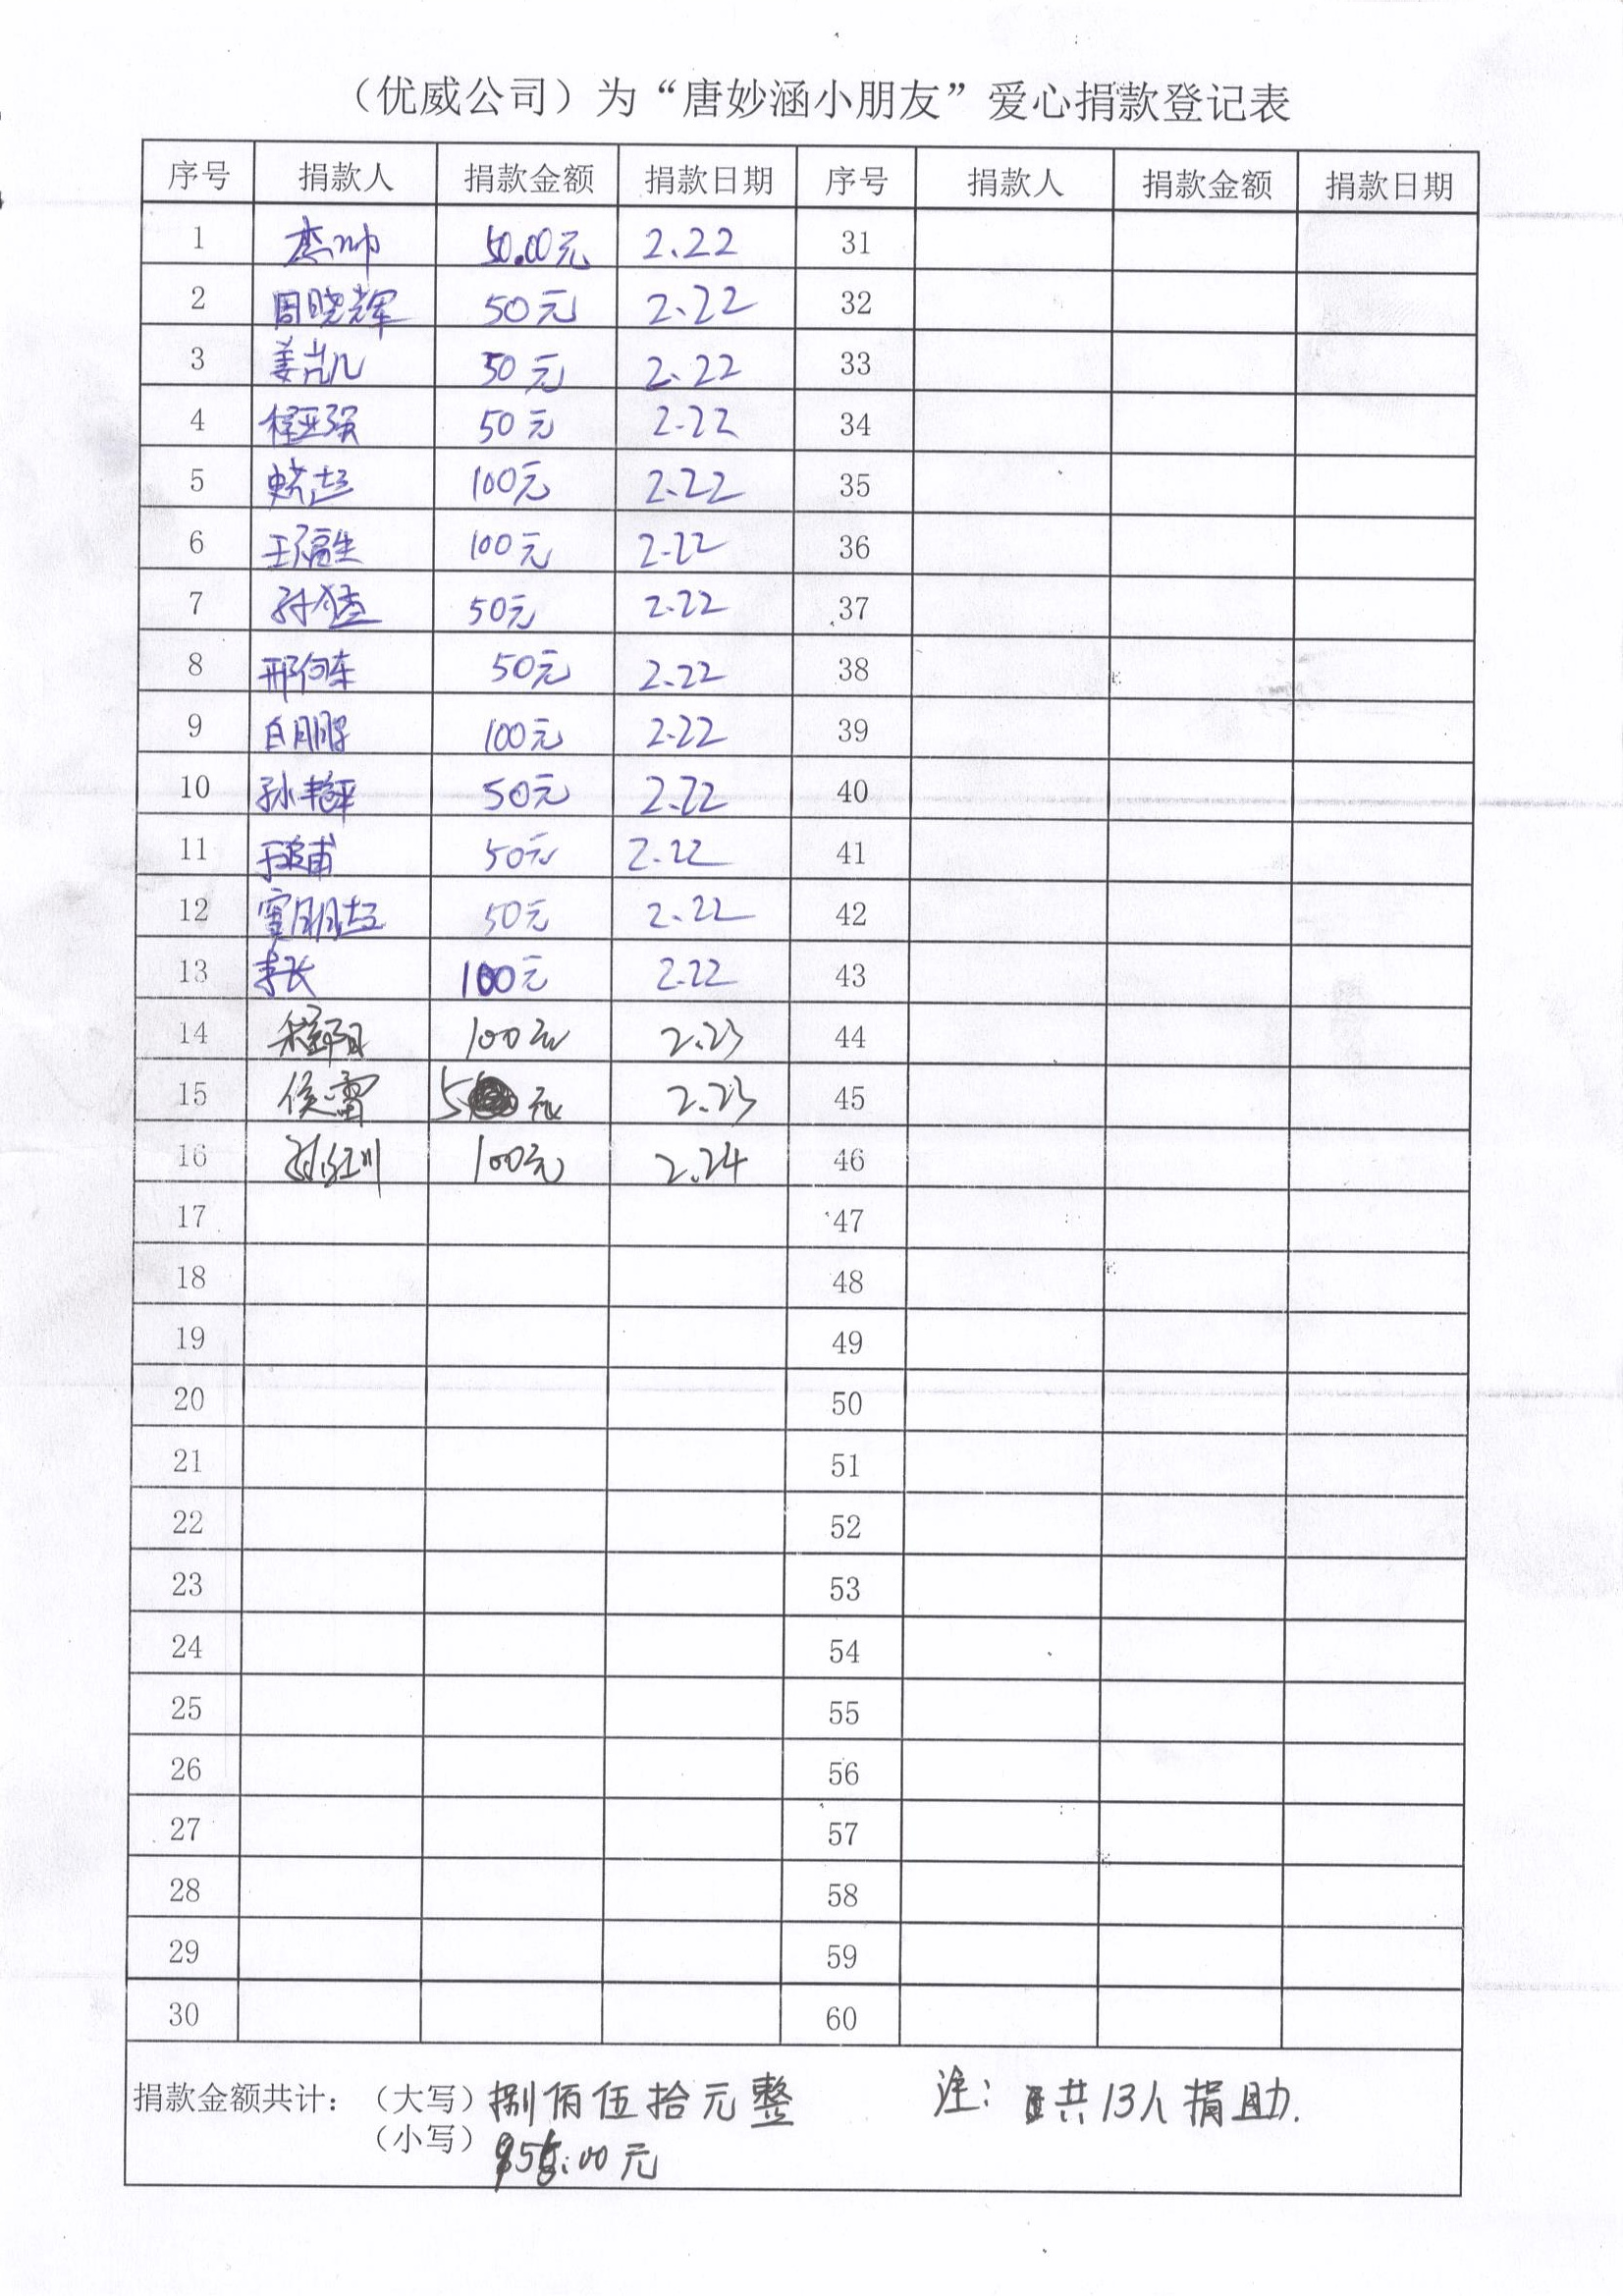 （优威公司）为“唐妙涵小朋友”爱心捐款登记表
序号 捐款人 捐款金额 捐款日期 序号 捐款人 捐款金额 捐款日期
1 李帅 50.00元 2.22 31
2 周晓辉 50元 2.22 32
3 姜凯 50元 2.22 33
4 程亚强 50元 2.22 34
5 100元 2.22 35
6 王福生 100元 2.22 36
7 孙猛 50元 2.22 37
8 邢向东 50元 2.22 38
9 白鹏 100元 2.22 39
10 孙艳平 50元 2.22 40
11 50元 2.22 41
12 50元 2.22 42
13 李长 100元 2.22 43
14 程阳 100元 2.23 44
15 侯雷 元 2.23 45
16 100元 2.24 46
17 47
18 48
19 49
20 50
21 51
22 52
23 53
24 54
25 55
26 56
27 57
28 58
29 59
30 60
捐款金额共计：（大写）捌佰伍拾元整 注：共13人捐助.
（小写）